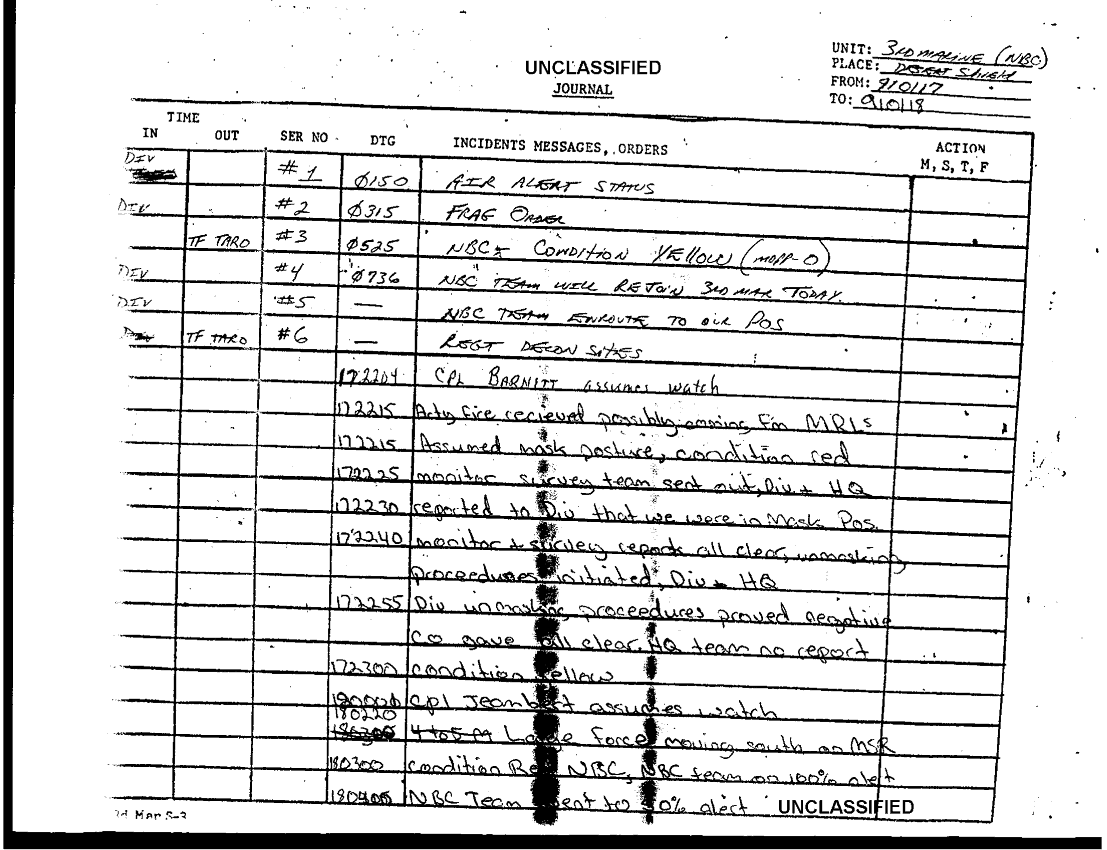 UNCLASSIFIED
JOURNAL
UNIT: 3RD MARINE (NBC)
PLACE: DESERT SHIELD
FROM: 910117
TO: 910118
TIME
IN OUT SER NO DTG INCIDENTS MESSAGES, ORDERS ACTION
M, S, T, F
DIV #1 Ø150 AIR ALERT STATUS
DIV #2 Ø315 FRAG ORDER
TF TARO #3 Ø525 NBC CONDITION YELLOW (MOPP-0)
DIV #4 Ø736 NBC TEAM WILL REJOIN 3RD MAR TODAY.
DIV #5 — NBC TEAM ENROUTE TO OUR POS
TF TARO #6 — REGT DECON SITES
172204 CPL BARNITT assumes watch
172215 Arty fire recieved possibly coming Fm MRLs
172215 Assumed mask posture, condition red
172225 monitor survey team sent out, Div + HQ
172230 reported to Div that we were in Mask Pos.
172240 monitor + survey reports all clear, unmasking
proceedures initiated, Div + HQ
172255 Div unmasking proceedures proved negative
CO gave all clear. HQ team no report
172300 condition yellow
Cpl assumes watch
180220
4 to 5 Large Force moving south on MSR
180300 condition Red NBC, NBC team on 100% alert
NBC Team sent to alert UNCLASSIFIED
3d Mar S-3